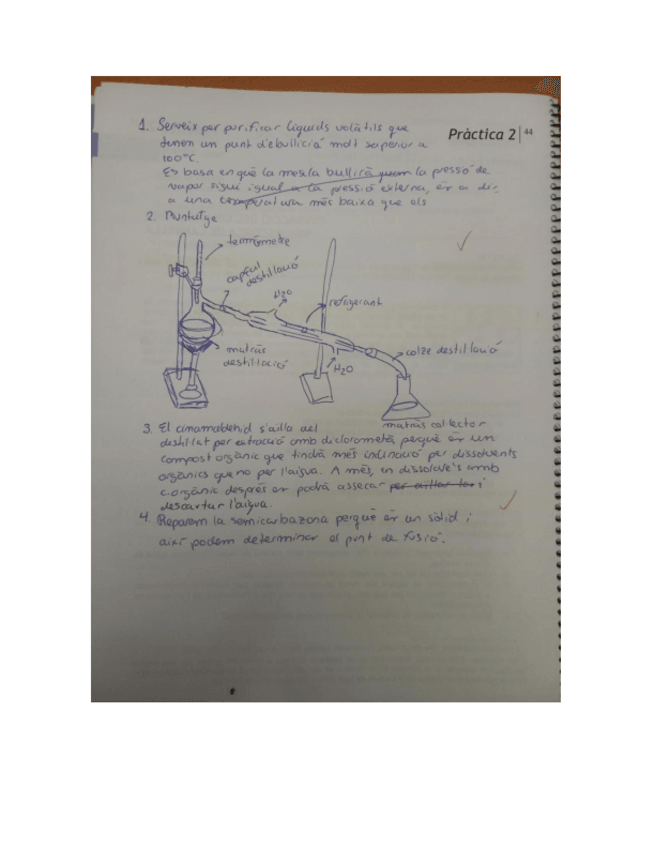 Pràctica 2 | 44
1. Serveix per purificar líquids volàtils que
tenen un punt d'ebullició molt superior a
100°C
Es basa en què la mescla bullirà quan la pressió de
vapor sigui igual a la pressió externa, és a dir,
a una temperatura més baixa que els
2. Muntatge
termòmetre
capçal
destil·lació
H2O
refrigerant
matràs
destil·lació
H2O
colze destil·lació
matràs col·lector
3. El cinamaldehid s'aïlla del
destil·lat per extracció amb diclorometà perquè és un
compost orgànic que tindrà més inclinació per dissolvents
orgànics que no per l'aigua. A més, en dissoldre's amb
c.orgànic després es podrà assecar per aïllar i
descartar l'aigua.
4. Preparem la semicarbazona perquè és un sòlid i
així podem determinar el punt de fusió.